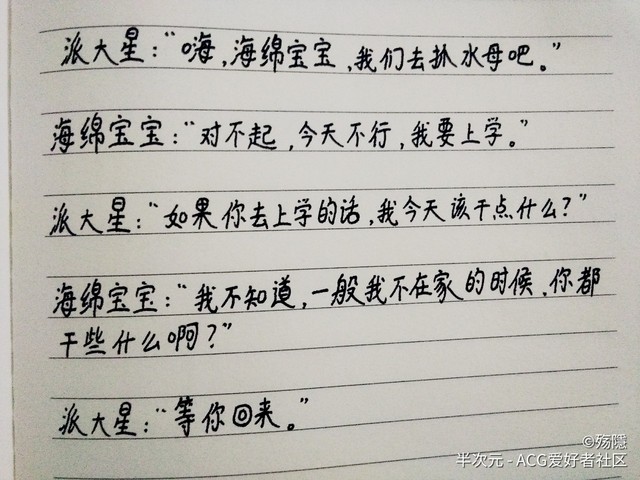 派大星：“嗨，海绵宝宝，我们去扒水母吧。”
海绵宝宝：“对不起，今天不行，我要上学。”
派大星：“如果你去上学的话，我今天该干点什么？”
海绵宝宝：“我不知道，一般我不在家的时候，你都
干些什么啊？”
派大星：“等你回来。”
©殇隱
半次元 - ACG爱好者社区